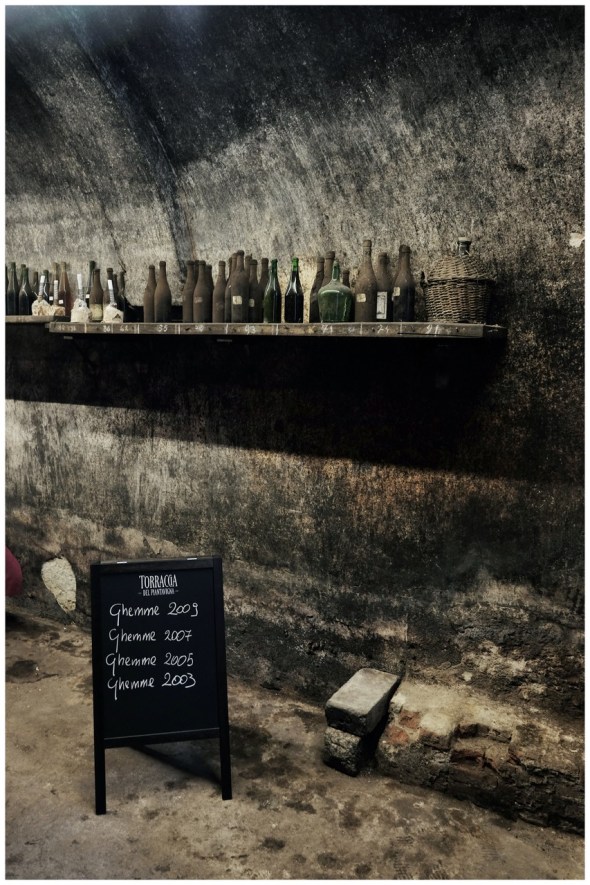 TORRACCIA
DEL PIANTAVIGNA
Ghemme 2009
Ghemme 2007
Ghemme 2005
Ghemme 2003